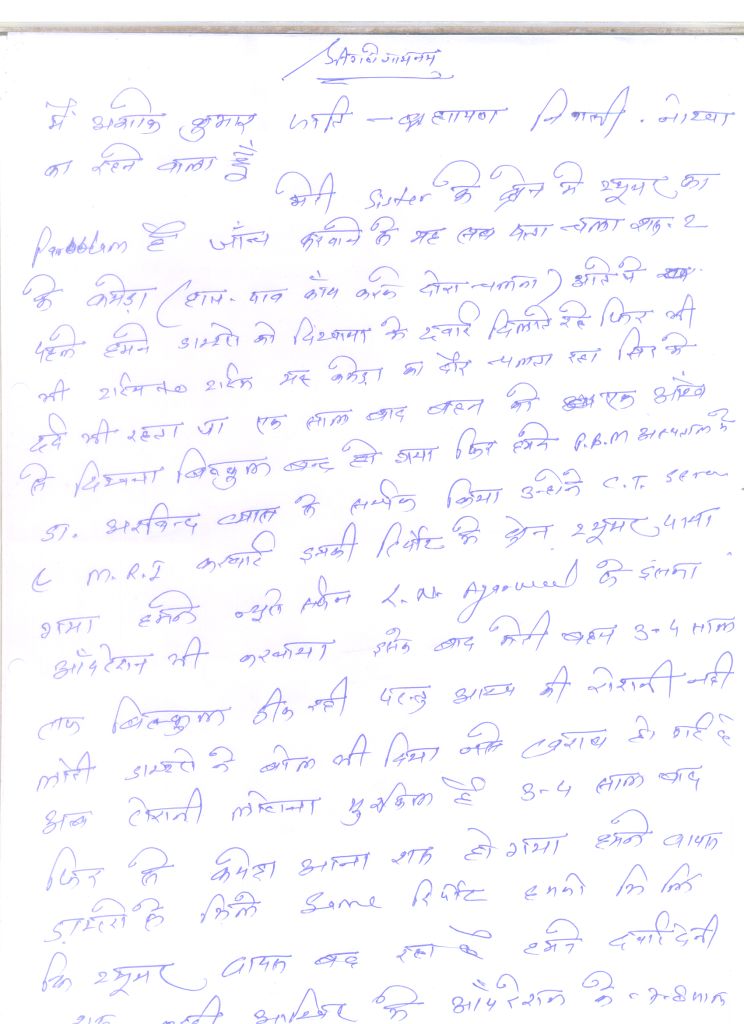 मैं अशोक कुमार जाति - ब्राह्मण निवासी . नोखा
का रहने वाला हूँ
मेरी Sister के ब्रेन मे ट्यूमर का
Problem है जाँच करवाने के यह सब पता चला शुरू-2
के कमेड़ा (हाथ-पाव काँप करके दौरा-चलना) आते थे
पहले हमने डाक्टरो को दिखाया के दवाई दिलाते रहे फिर भी
भी टाईम टू टाईम यह कमेड़ा का दौर चलता रहा सिर मे
दर्द भी रहता था एक साल बाद बहन की एक आँख
से दिखना बिल्कुल बन्द हो गया फिर हमने P.B.M अस्पताल के
डा. अरविन्द व्यास से सर्म्पक किया उन्होने C.T. Scan
व M.R.I करवाई इसकी रिर्पोट मे ब्रेन ट्यूमर पाया
गया हमने न्यूरो सर्जन L.N. Agarwal से इसका
आँपरेशन भी करवाया इसके बाद मेरी बहन 3-4 साल
तक बिल्कुल ठीक रही परन्तु आँख की रोशनी नही
लोटी डाक्टरो ने बोल भी दिया नसे खराब हो गई है
अब रोशनी लोटाना मुश्किल है 3-4 साल बाद
फिर से कमेड़ा आना शुरू हो गया हमने वापस
डाक्टरो से मिले Same रिर्पोट हमको मिली
कि ट्यूमर वापस बढ रहा है हमने दवाई देनी
शुरू आँपरेशन के